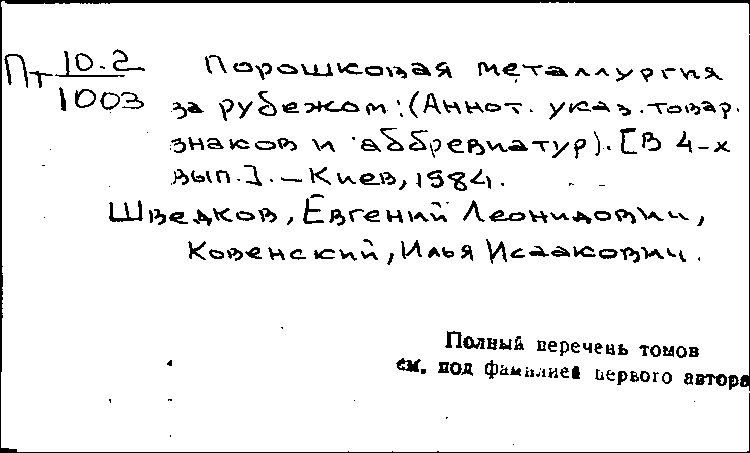 Пт 10.2/1003 Порошковая металлургия
за рубежом: (Аннот. указ. товар.
знаков и аббревиатур). [В 4-х
вып.]. – Киев, 1984.
Шведков, Евгений Леонидович,
Ковенский, Илья Исаакович.
Полный перечень томов
см. под фамилией первого автора